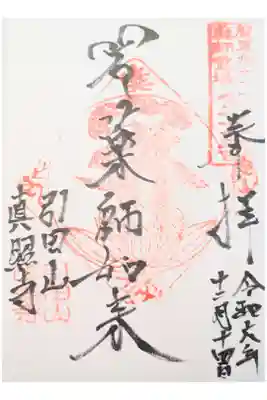 奉拝
令和六年
十二月十四日
岩薬師如来
引田山
真照寺